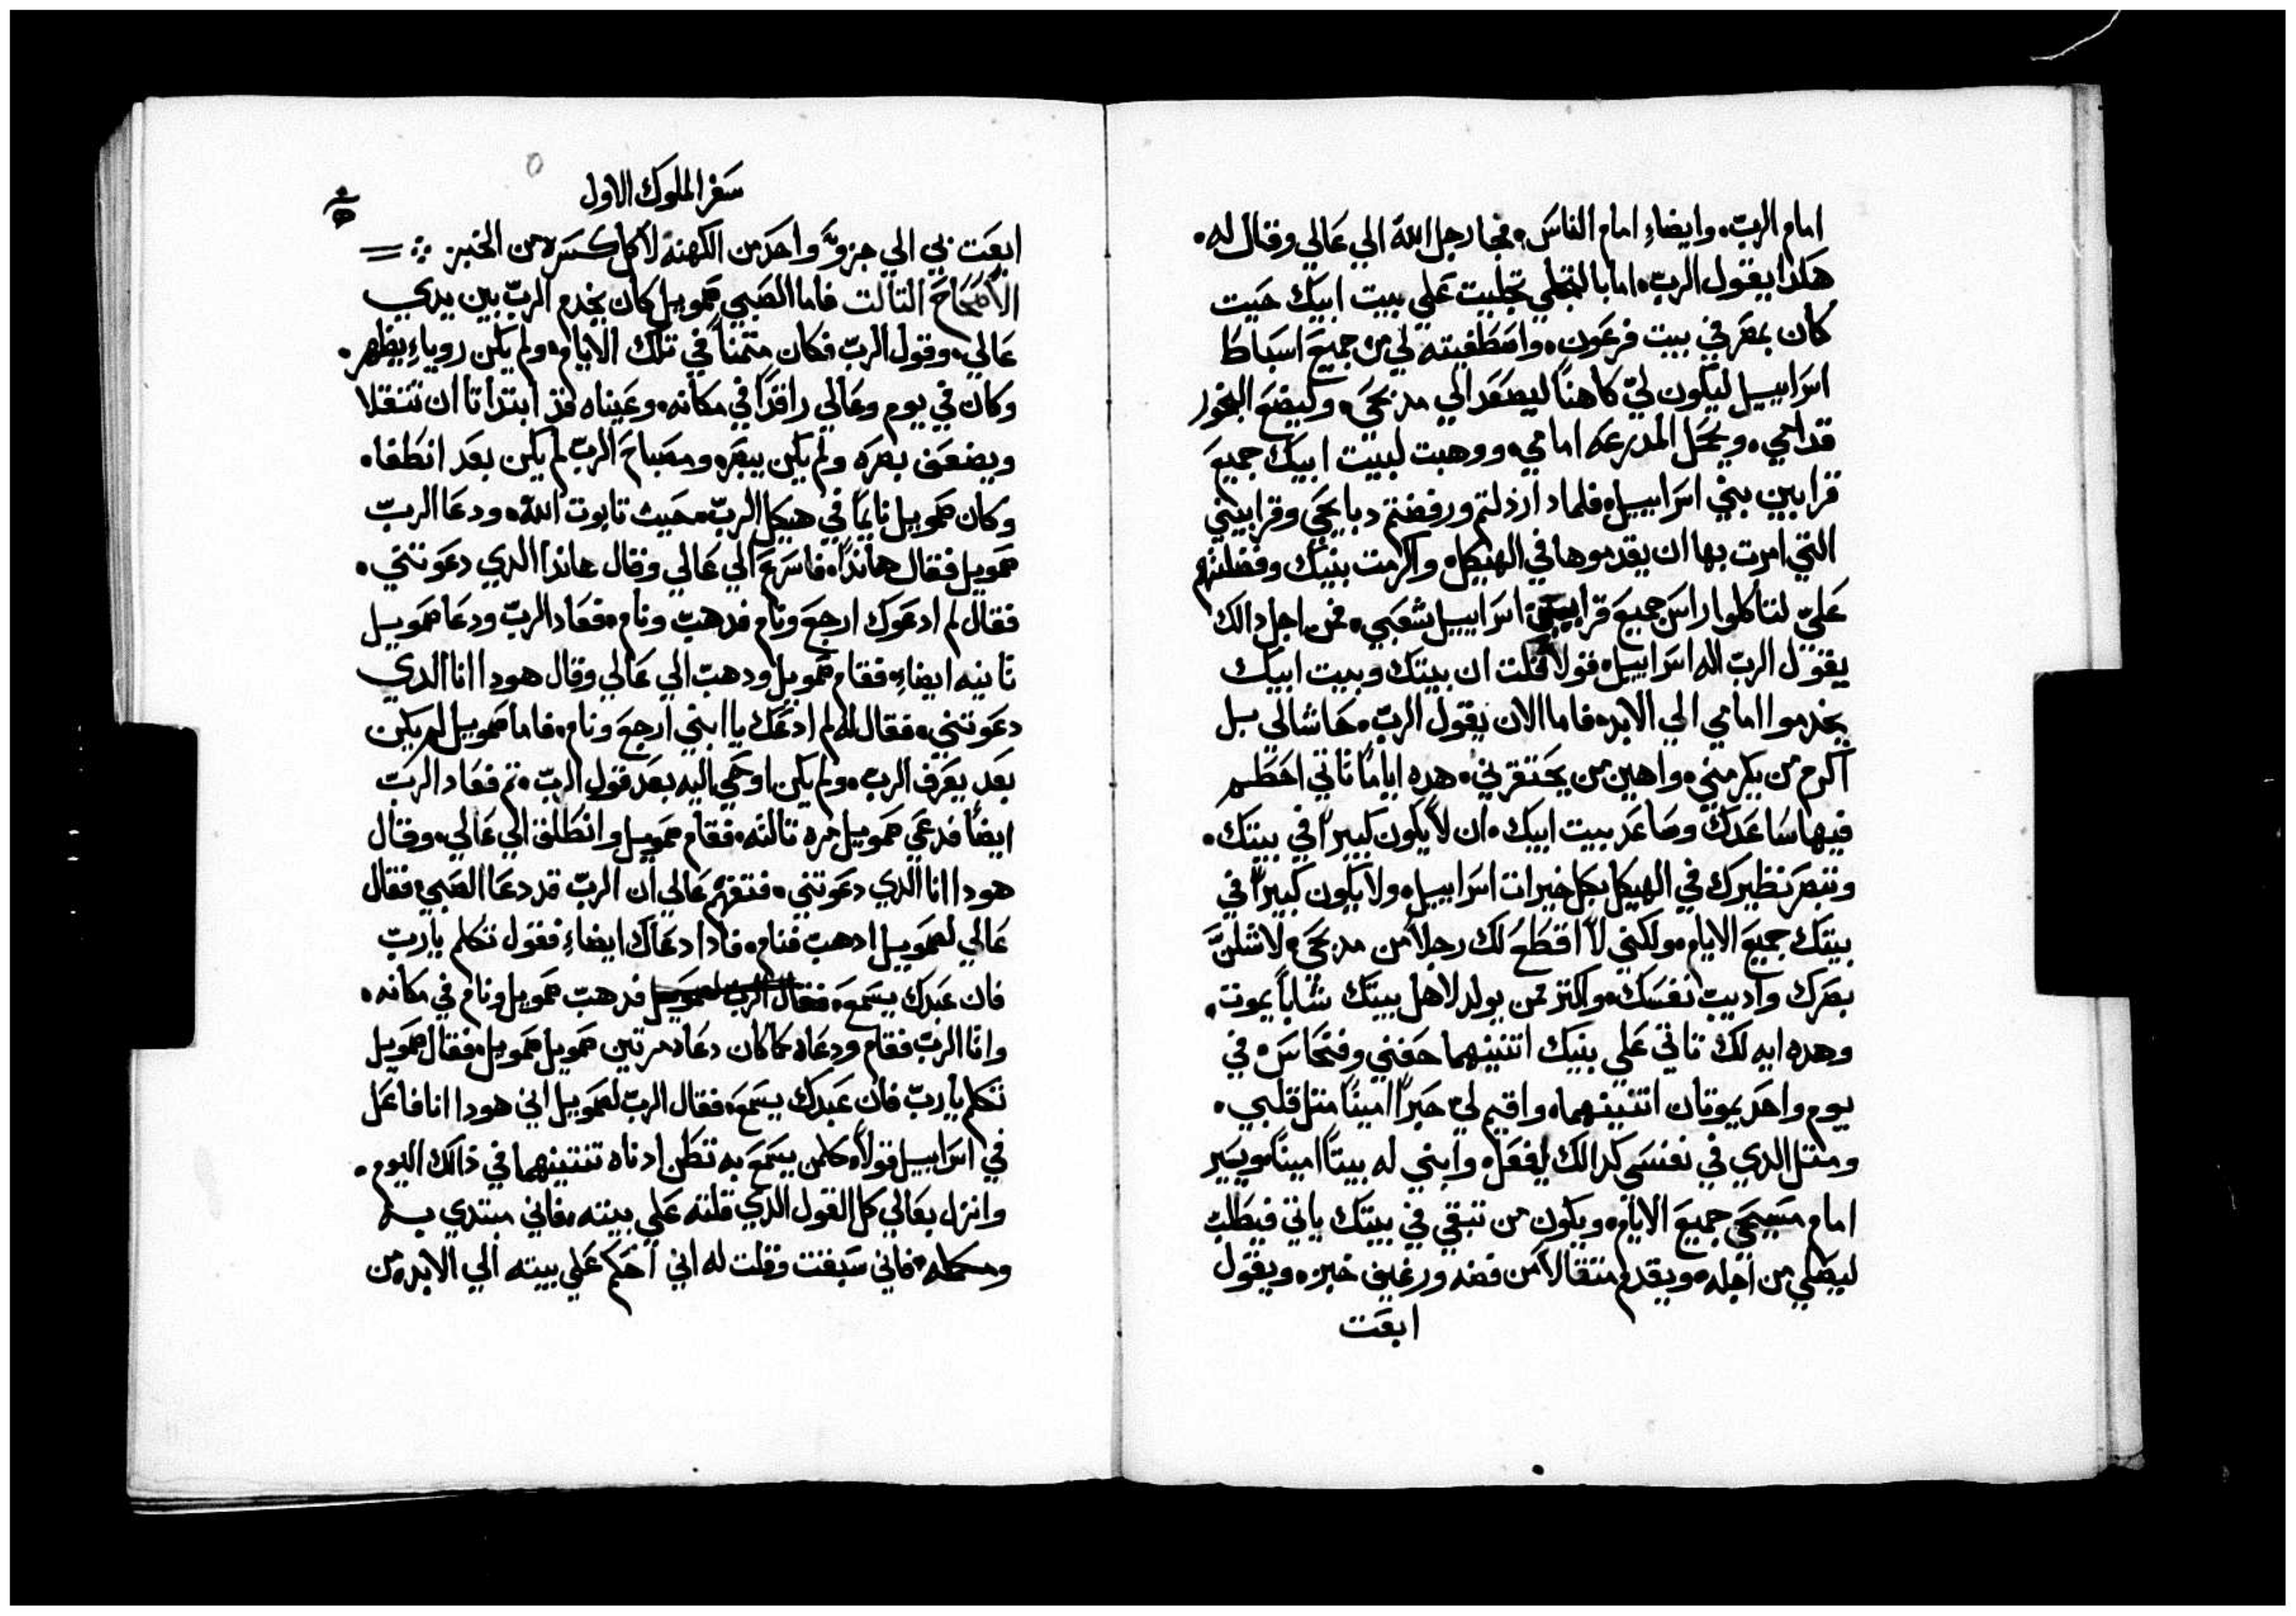 امام الرب. وايضاء امام الناس. فجا رجل الله الي عالي وقال له.
هكذا يقول الرب. اما بالتجلي تجليت علي بيت ابيك حيت
كان بمصر في بيت فرعون. واصطفيته لي من جميع اسباط
اسراييل ليكون لي كاهناً ليصعد الي مدبحي. وليضع البخور
قدامي. ويحمل المدرعه امامي. ووهبت لبيت ابيك جميع
قرابين بني اسراييل. فلمادا ارذلتم ورفضتم دبايحي وقرابيني
التي امرت بها ان يقدموها في الهيكل. واكرمت بنيك وفضلتهم
علي لتاكلوا راس جميع قرابين اسراييل شعبي. فمن اجل دالك
يقول الرب اله اسراييل. قولا قلت ان بيتك وبيت ابيك
يخدموا امامي الي الابد. فاما الان يقول الرب. حاشا لي بل
اكرم من يكرمني. واهين من يحتقرني. هده اياماً تاتي احطم
فيها ساعدك وصاعد بيت ابيك. ان لا يكون كبيراً في بيتك.
وتنصر نظيرك في الهيكل بكل خيرات اسراييل. ولا يكون كبيراً في
بيتك جميع الايام. ولكني لا اقطع لك رجلاً من مدبحي. لاشلن
بصرك واديب نفسك. واكتر من يولد لاهل بيتك شاباً يموت.
وهده ايه لك تاتي علي بنيك اتنينهما حفني وفنحاس. في
يوم واحد يموتان اتنينهما. واقيم لي حبراً اميناً متل قلبي.
ومتل الدي في نفسي كدالك يفعل. وابني له بيتاً اميناً ويسير
امام مسيحي جميع الايام. ويكون من تبقي في بيتك ياتي فيطلب
ليصلي من اجله. ويقدم متقالاً من فضه ورغيف خبز. ويقول
ابعت
سفر الملوك الاول
ابعت بي الي جزو واحد من الكهنة لاكل كسره من الخبز
الاصحاح التالت فاما الصبي صمويل كان يخدم الرب بين يدي
عالي. وقول الرب فكان متمناً في تلك الايام. ولم يكن روياء يظهر.
وكان في يوم وعالي راقداً في مكانه. وعيناه قد ابتداتا ان تتقلا
ويضعف بصره ولم يكن يبصر. ومصباح الرب لم يكن بعد انطفا.
وكان صمويل نايماً في هيكل الرب. حيث تابوت الله. ودعا الرب
صمويل فقال هاندا. فاسرع الي عالي وقال هاندا الدي دعوتني.
فقال لم ادعوك ارجع ونام فدهب ونام. فعاد الرب ودعا صمويل
تانيه ايضاء. فقام صمويل ودهب الي عالي وقال هودا انا الدي
دعوتني. فقال له لم ادعك يا ابني ارجع ونام. فاما صمويل لم يكن
بعد يعرف الرب. ولم يكن اوحي اليه بعد قول الرب. تم فعاد الرب
ايضاً فدعي صمويل مره تالته. فقام صمويل وانطلق الي عالي. وقال
هودا انا الدي دعوتني. فتفهم عالي ان الرب قد دعا الصبي. فقال
عالي لصمويل ادهب فنام. فادا دعاك ايضاء فقول تكلم يارب
فان عبدك يسمع. فقال الرب لصمويل فدهب صمويل ونام في مكانه.
واتا الرب فقام ودعاه كما كان دعاه مرتين صمويل صمويل. فقال صمويل
تكلم يا رب فان عبدك يسمع. فقال الرب لصمويل اني هودا انا فاعل
في اسراييل قولاً. كلمن يسمع به تطن ادناه تنتينهما في ذالك اليوم.
وانزل بعالي كل القول الدي قلته علي بيته. فاني مبتدي به
ومكمله. فاني سبقت وقلت له اني احكم علي بيته الي الابد. من